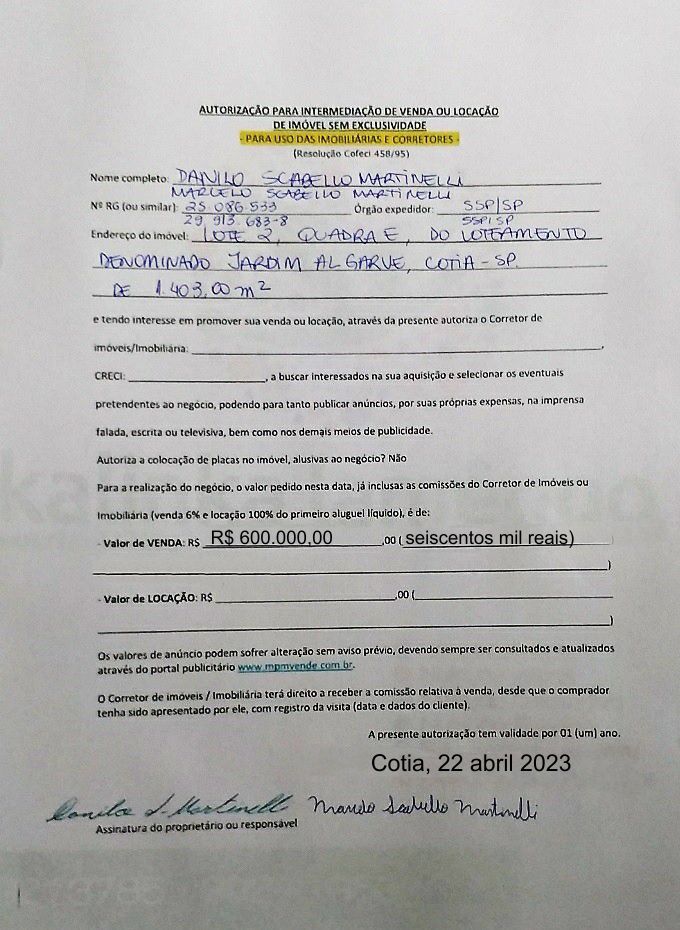 AUTORIZAÇÃO PARA INTERMEDIAÇÃO DE VENDA OU LOCAÇÃO
DE IMÓVEL SEM EXCLUSIVIDADE
- PARA USO DAS IMOBILIÁRIAS E CORRETORES -
(Resolução Cofeci 458/95)
Nome completo: DANILO SCABELLO MARTINELLI
MARCELO SCABELLO MARTINELLI
Nº RG (ou similar): 25 086 533 Órgão expedidor: SSP/SP
29 913.683-8 SSP/SP
Endereço do imóvel: LOTE 2, QUADRA E, DO LOTEAMENTO
DENOMINADO JARDIM ALGARVE, COTIA - SP.
DE 1.403,00 m²
e tendo interesse em promover sua venda ou locação, através da presente autoriza o Corretor de
imóveis/Imobiliária: ,
CRECI: , a buscar interessados na sua aquisição e selecionar os eventuais
pretendentes ao negócio, podendo para tanto publicar anúncios, por suas próprias expensas, na imprensa
falada, escrita ou televisiva, bem como nos demais meios de publicidade.
Autoriza a colocação de placas no imóvel, alusivas ao negócio? Não
Para a realização do negócio, o valor pedido nesta data, já inclusas as comissões do Corretor de Imóveis ou
Imobiliária (venda 6% e locação 100% do primeiro aluguel líquido), é de:
- Valor de VENDA: R$ R$ 600.000,00 ,00 ( seiscentos mil reais)
)
- Valor de LOCAÇÃO: R$ ,00 (
)
Os valores de anúncio podem sofrer alteração sem aviso prévio, devendo sempre ser consultados e atualizados
através do portal publicitário www.mpmvende.com.br.
O Corretor de imóveis / Imobiliária terá direito a receber a comissão relativa à venda, desde que o comprador
tenha sido apresentado por ele, com registro da visita (data e dados do cliente).
A presente autorização tem validade por 01 (um) ano.
Cotia, 22 abril 2023
Danilo S. Martinelli Marcelo Scabello Martinelli
Assinatura do proprietário ou responsável